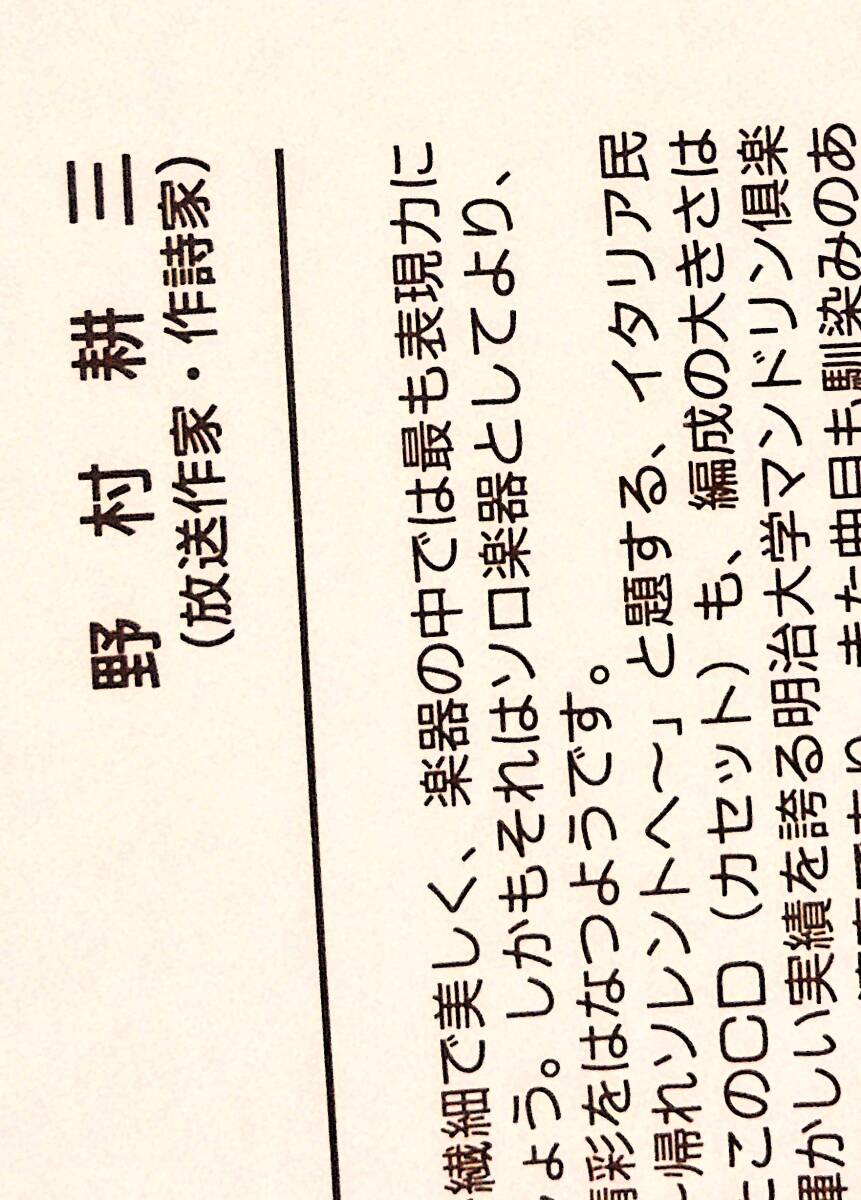 野村耕三
(放送作家・作詩家)
繊細で美しく、楽器の中では最も表現力に
ょう。しかもそれはソロ楽器としてより、
精彩をはなつようです。
帰れソレントへ〜」と題する、イタリア民
このCD(カセット)も、編成の大きさは
輝かしい実績を誇る明治大学マンドリン倶楽
であり、また曲目も馴染みのあ